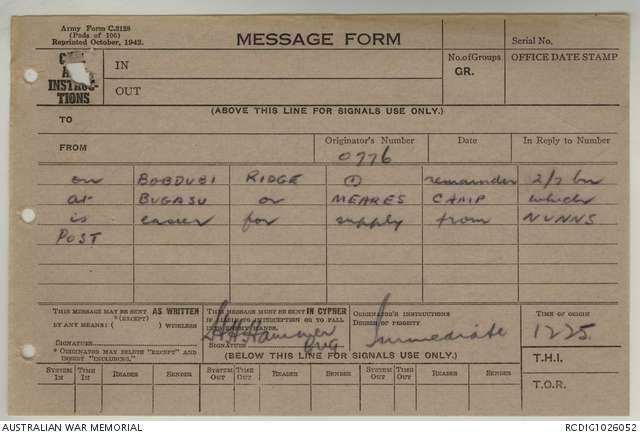 Army Form C.2128
(Pads of 100)
Reprinted October, 1942.
MESSAGE FORM
Serial No.
IN
OUT
No. of Groups
GR.
OFFICE DATE STAMP
INSTRUC-
TIONS
(ABOVE THIS LINE FOR SIGNALS USE ONLY.)
TO
FROM
Originator's Number
0776
Date
In Reply to Number
on BOBDUBI RIDGE remainder 2/7 bn
at BUGASU or MEARES CAMP which
is easier for supply from NUNNS
POST
THIS MESSAGE MAY BE SENT AS WRITTEN
*(EXCEPT)
BY ANY MEANS ( ) WIRELESS
SIGNATURE
* ORIGINATOR MAY DELETE "EXCEPT" AND
INSERT "INCLUDING."
THIS MESSAGE MUST BE SENT IN CYPHER
IF LIABLE TO INTERCEPTION OR TO FALL
INTO ENEMY HANDS.
HH Hammer
SIGNATURE
ORIGINATOR'S INSTRUCTIONS
DEGREE OF PRIORITY
Immediate
TIME OF ORIGIN
1225
(BELOW THIS LINE FOR SIGNALS USE ONLY.)
T.H.I.
T.O.R.
SYSTEM IN TIME IN READER SENDER SYSTEM OUT TIME OUT READER SENDER SYSTEM OUT TIME OUT READER SENDER
AUSTRALIAN WAR MEMORIAL
RCDIG1026052